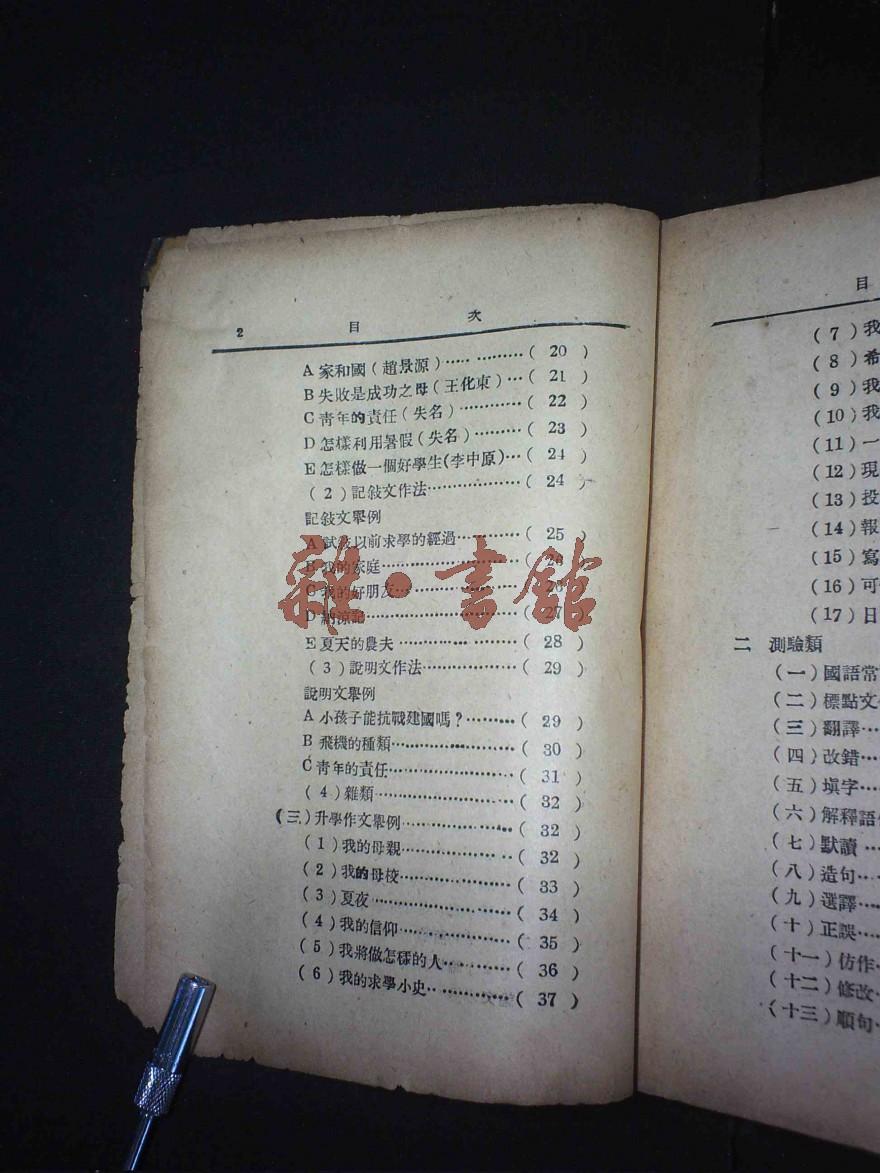 2 目 次
A 家和國（趙景源）…… ………（ 20 ）
B 失敗是成功之母（王化東）…（ 21 ）
C 靑年的責任（失名）…………（ 22 ）
D 怎樣利用暑假（失名）………（ 23 ）
E 怎樣做一個好學生(李中原)…（ 24 ）
（2）記敍文作法………………（ 24 ）
記敍文舉例
A 試教以前求學的經過…………（ 25 ）
B 我的家庭………………………（ 26 ）
C 我的好朋友……………………（
D 納涼記…………………………（ 27 ）
E 夏天的農夫……………………（ 28 ）
（3）說明文作法………………（ 29 ）
說明文舉例
A 小孩子能抗戰建國嗎？………（ 29 ）
B 飛機的種類……………………（ 30 ）
C 靑年的責任……………………（ 31 ）
（4）雜類………………………（ 32 ）
（三）升學作文舉例……………（ 32 ）
（1）我的母親…………………（ 32 ）
（2）我的母校…………………（ 33 ）
（3）夏夜………………………（ 34 ）
（4）我的信仰…………………（ 35 ）
（5）我將做怎樣的人…………（ 36 ）
（6）我的求學小史……………（ 37 ）
雜·書館
目
（7）我
（8）希
（9）我
（10）我
（11）一
（12）現
（13）投
（14）報
（15）寫
（16）可
（17）日
二 測驗類
（一）國語常
（二）標點文
（三）翻譯…
（四）改錯…
（五）塡字…
（六）解釋語
（七）默讀…
（八）造句…
（九）選譯…
（十）正誤…
（十一）仿作
（十二）修改
（十三）順句